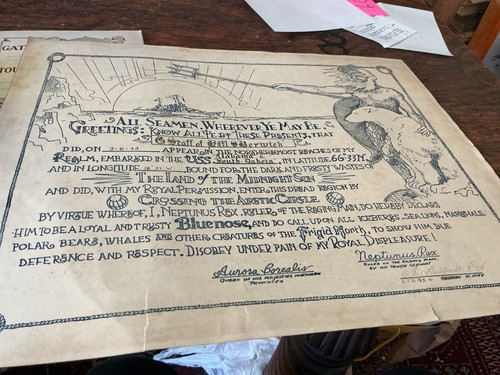 GAT
TOU
ALL SEAMEN, WHEREVER YE MAY BE,
GREETINGS: KNOW ALL YE BY THESE PRESENTS, THAT
DID, ON APPEAR IN NORTHERNMOST REACHES OF MY
REALM, EMBARKED IN THE USS Alabama & South Dakota, IN LATITUDE 66°33'N.
AND IN LONGITUDE BOUND FOR THE DARK AND FROSTY WASTES OF
THE LAND OF THE MIDNIGHT SUN
AND DID, WITH MY ROYAL PERMISSION, ENTER THIS DREAD REGION BY
CROSSING THE ARCTIC CIRCLE
BY VIRTUE WHEREOF, I, NEPTUNUS REX, RULER OF THE RAGING MAIN, DO HEREBY DECLARE
HIM TO BE A LOYAL AND TRUSTY Bluenose, AND DO CALL UPON ALL ICEBERGS, SEA LIONS, NARWHALS
POLAR BEARS, WHALES AND OTHER CREATURES OF THE Frigid North, TO SHOW HIM DUE
DEFERENCE AND RESPECT. DISOBEY UNDER PAIN OF MY ROYAL DISPLEASURE!
Aurora Borealis
QUEEN OF HIS MAJESTY'S NORTHERN
PROVINCES
Neptunus Rex
RULER OF THE RAGING MAIN
BY HIS TRUSTY SERVANT